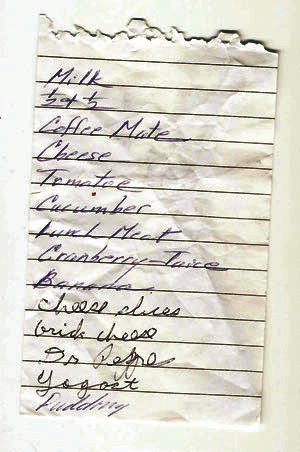 Milk
½ & ½
Coffee Mate
Cheese
Tomatoe
Cucumber
Lunch Meat
Cranberry-Juice
Banana
cheese slices
brick cheese
Dr Pepper
Yogost
Pudding